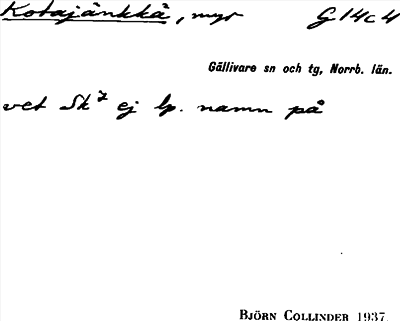 Kotajänkkä, myr G 14c4
Gällivare sn och tg, Norrb. län.
vet Sk⁷ ej lp. namn på
BJÖRN COLLINDER 1937.